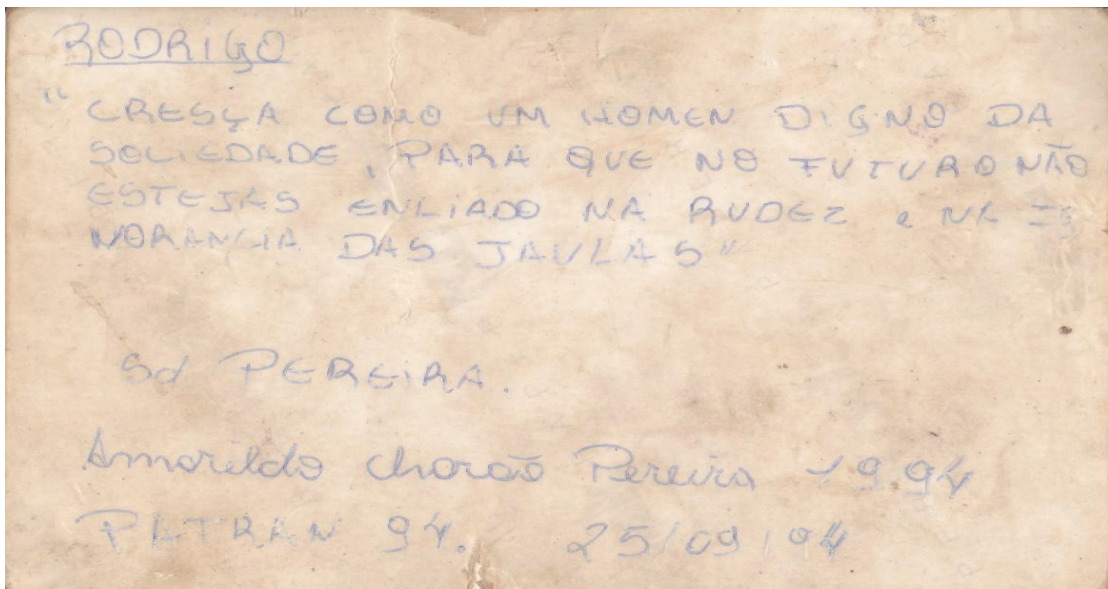 RODRIGO
"CRESÇA COMO UM HOMEN DIGNO DA
SOCIEDADE, PARA QUE NO FUTURO NÃO
ESTEJAS ENLIADO NA RUDEZ e NA IG
NORANCIA DAS JAULAS"
Sd PEREIRA.
Amarildo Chorão Pereira 1994
PATRAN 94. 25/09/94